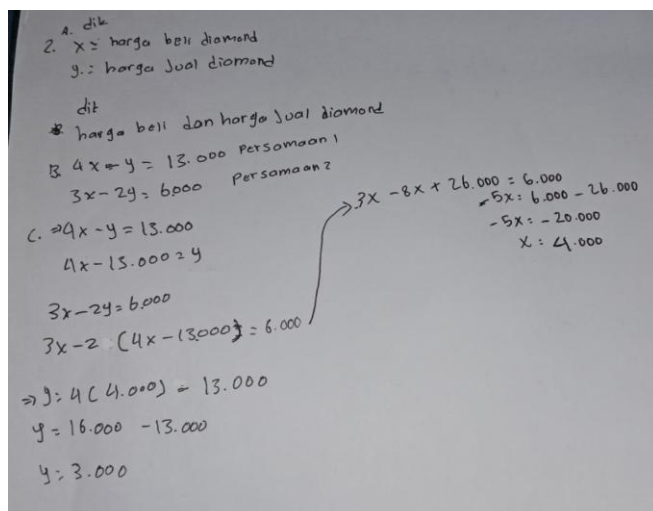 A. dik
2. x = harga beli diamond
y. : harga Jual diamond
dit
* harga beli dan harga Jual diamond
B. 4x - y = 13.000 Persamaan 1
3x - 2y = 6000 Persamaan 2
C. ⇒ 4x - y = 13.000
4x - 13.000 = y
3x - 2y = 6.000
3x - 2 (4x - 13.000) = 6.000
3x - 8x + 26.000 = 6.000
-5x = 6.000 - 26.000
-5x = -20.000
x = 4.000
⇒ y = 4 (4.000) - 13.000
y = 16.000 - 13.000
y = 3.000